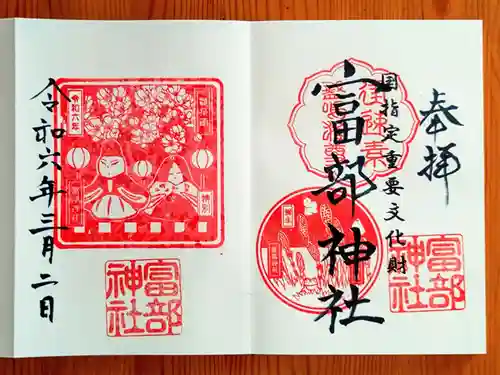 奉拝
国指定重要文化財
富部神社
富部
神社
令和六年三月二日
令和六年
富部
神社